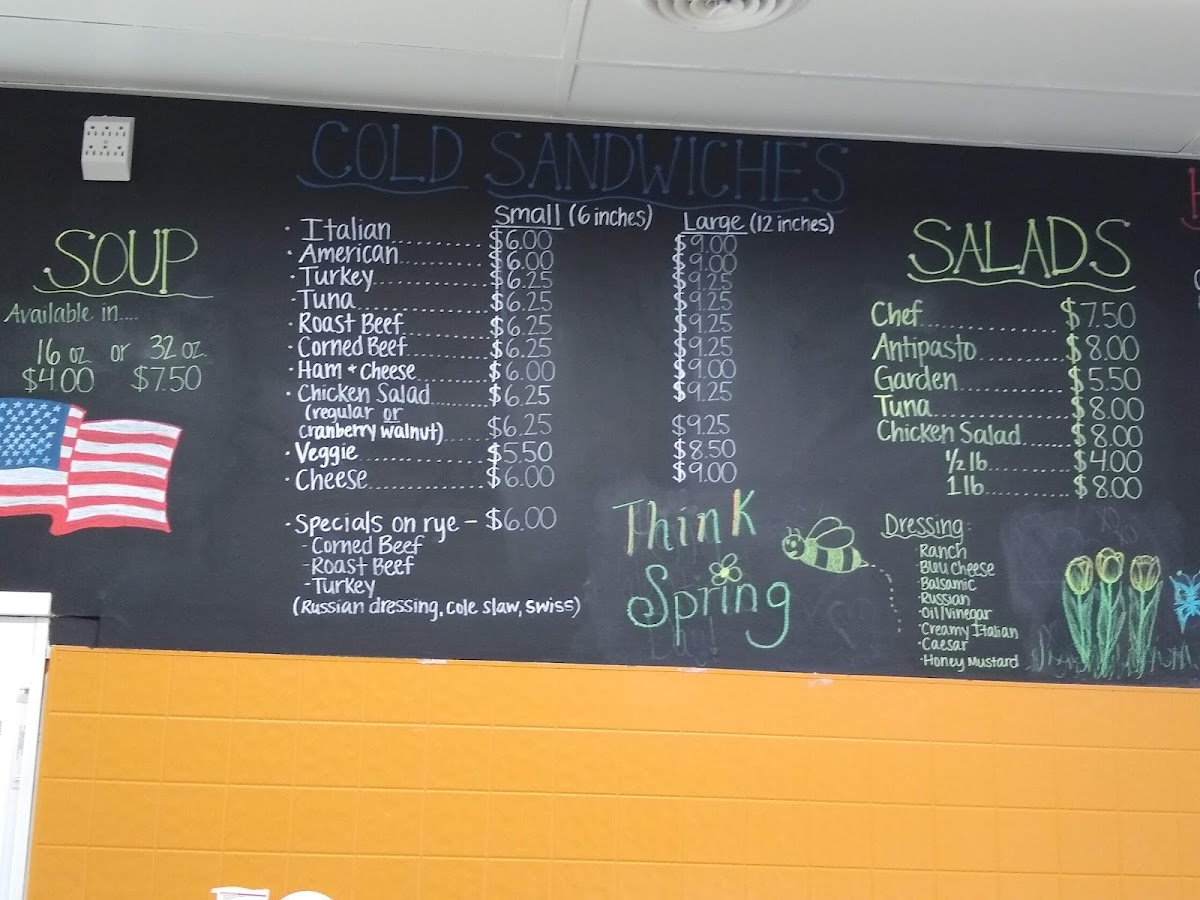 COLD SANDWICHES
Small (6 inches) Large (12 inches)
· Italian $6.00 $9.00
· American........... $6.00 $9.00
· Turkey.............. $6.25 $9.25
· Tuna................. $6.25 $9.25
· Roast Beef.......... $6.25 $9.25
· Corned Beef......... $6.25 $9.25
· Ham + Cheese....... $6.00 $9.00
· Chicken Salad....... $6.25 $9.25
(regular or
cranberry walnut)...... $6.25 $9.25
· Veggie............... $5.50 $8.50
· Cheese............... $6.00 $9.00
· Specials on rye - $6.00
- Corned Beef
- Roast Beef
- Turkey
(Russian dressing, cole slaw, swiss)
SOUP
Available in....
16 oz or 32 oz
$4.00 $7.50
Think
Spring
SALADS
Chef................ $7.50
Antipasto.......... $8.00
Garden............. $5.50
Tuna................ $8.00
Chicken Salad..... $8.00
1/2 lb............... $4.00
1 lb................. $8.00
Dressing:
· Ranch
· Bleu Cheese
· Balsamic
· Russian
· Oil/Vinegar
· Creamy Italian
· Caesar
· Honey Mustard